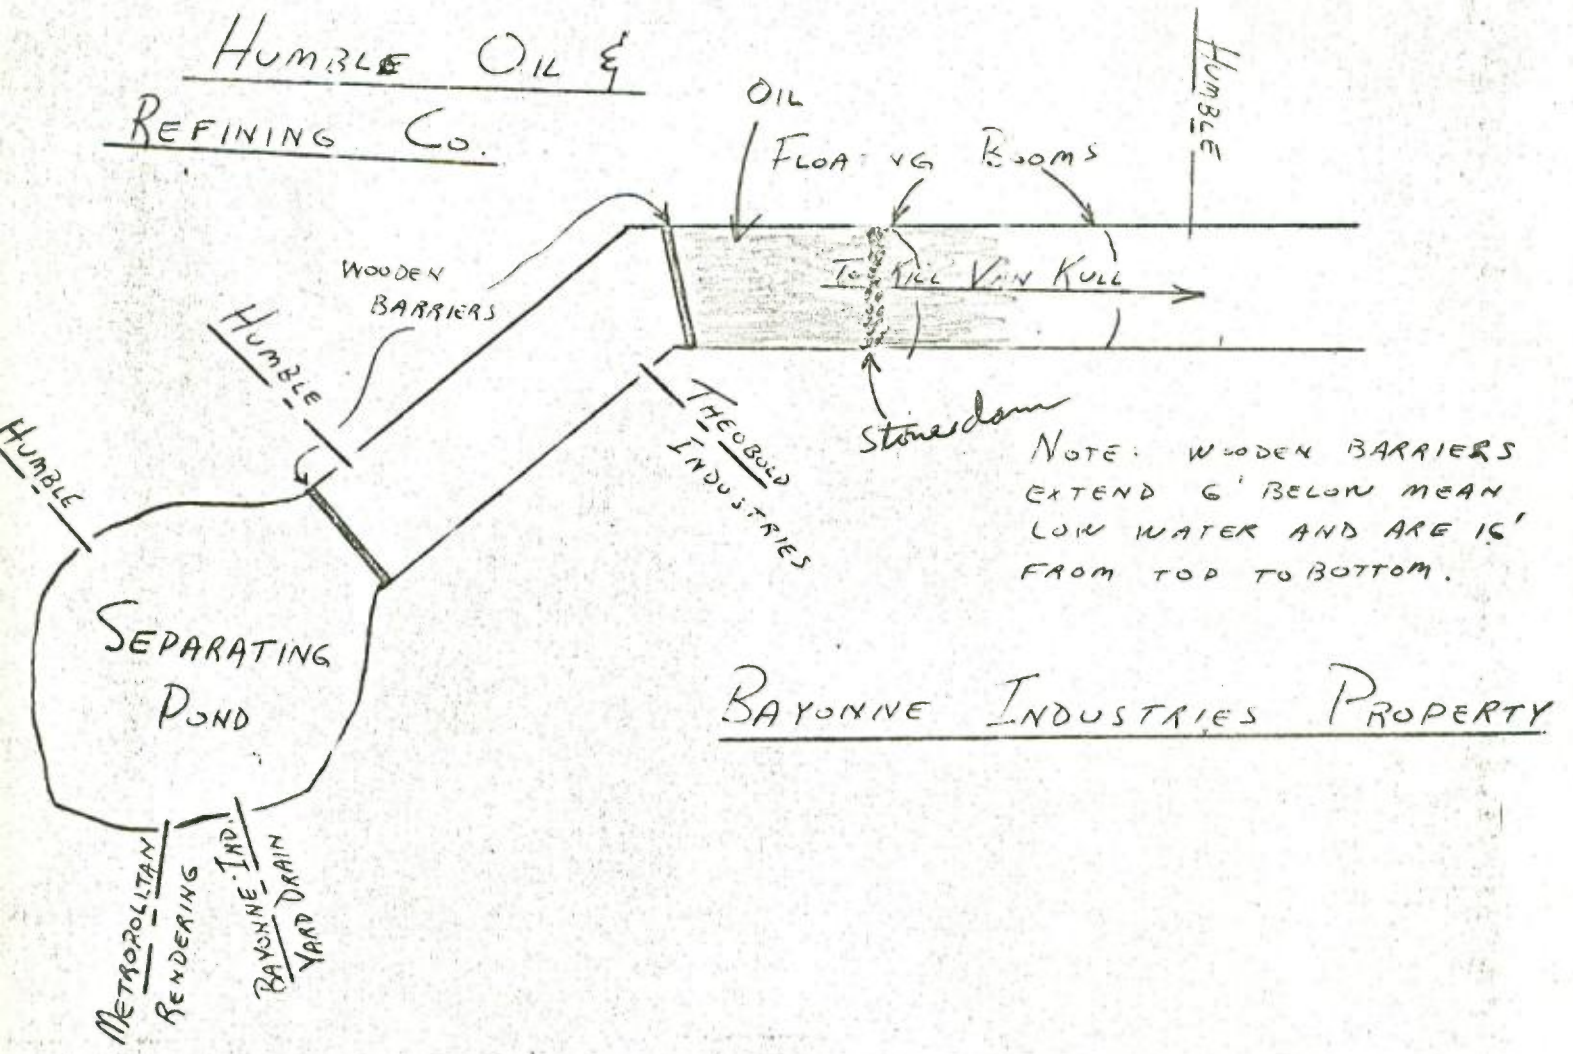 HUMBLE OIL &
REFINING CO.
OIL
FLOATING BOOMS
HUMBLE
WOODEN
BARRIERS
TO KILL VAN KULL
HUMBLE
HUMBLE
THEOBOLD
INDUSTRIES
Stone dam
NOTE: WOODEN BARRIERS
EXTEND 6' BELOW MEAN
LOW WATER AND ARE 16'
FROM TOP TO BOTTOM.
SEPARATING
POND
BAYONNE INDUSTRIES PROPERTY
METROPOLITAN
RENDERING
BAYONNE IND.
YARD DRAIN